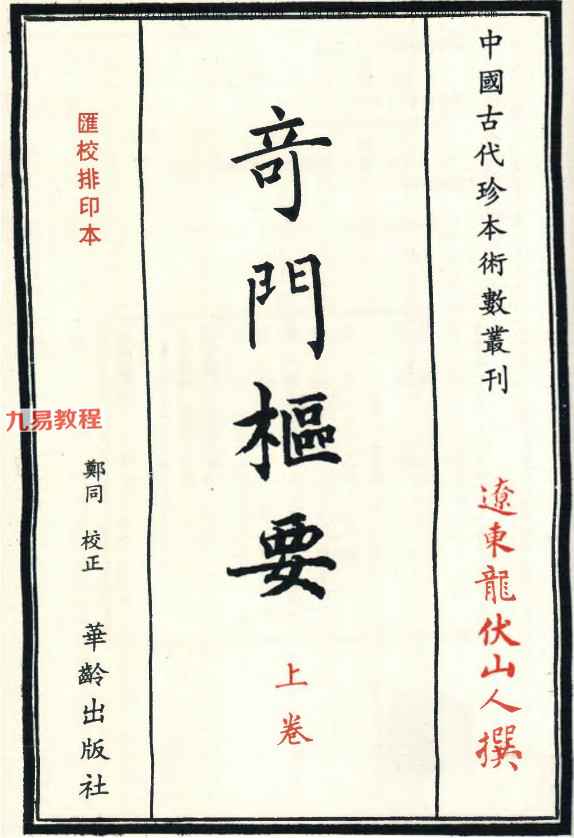 中國古代珍本術數叢刊
遼東龍伏山人撰
奇門樞要
上卷
匯校排印本
九易教程
鄭同 校正
華齡出版社